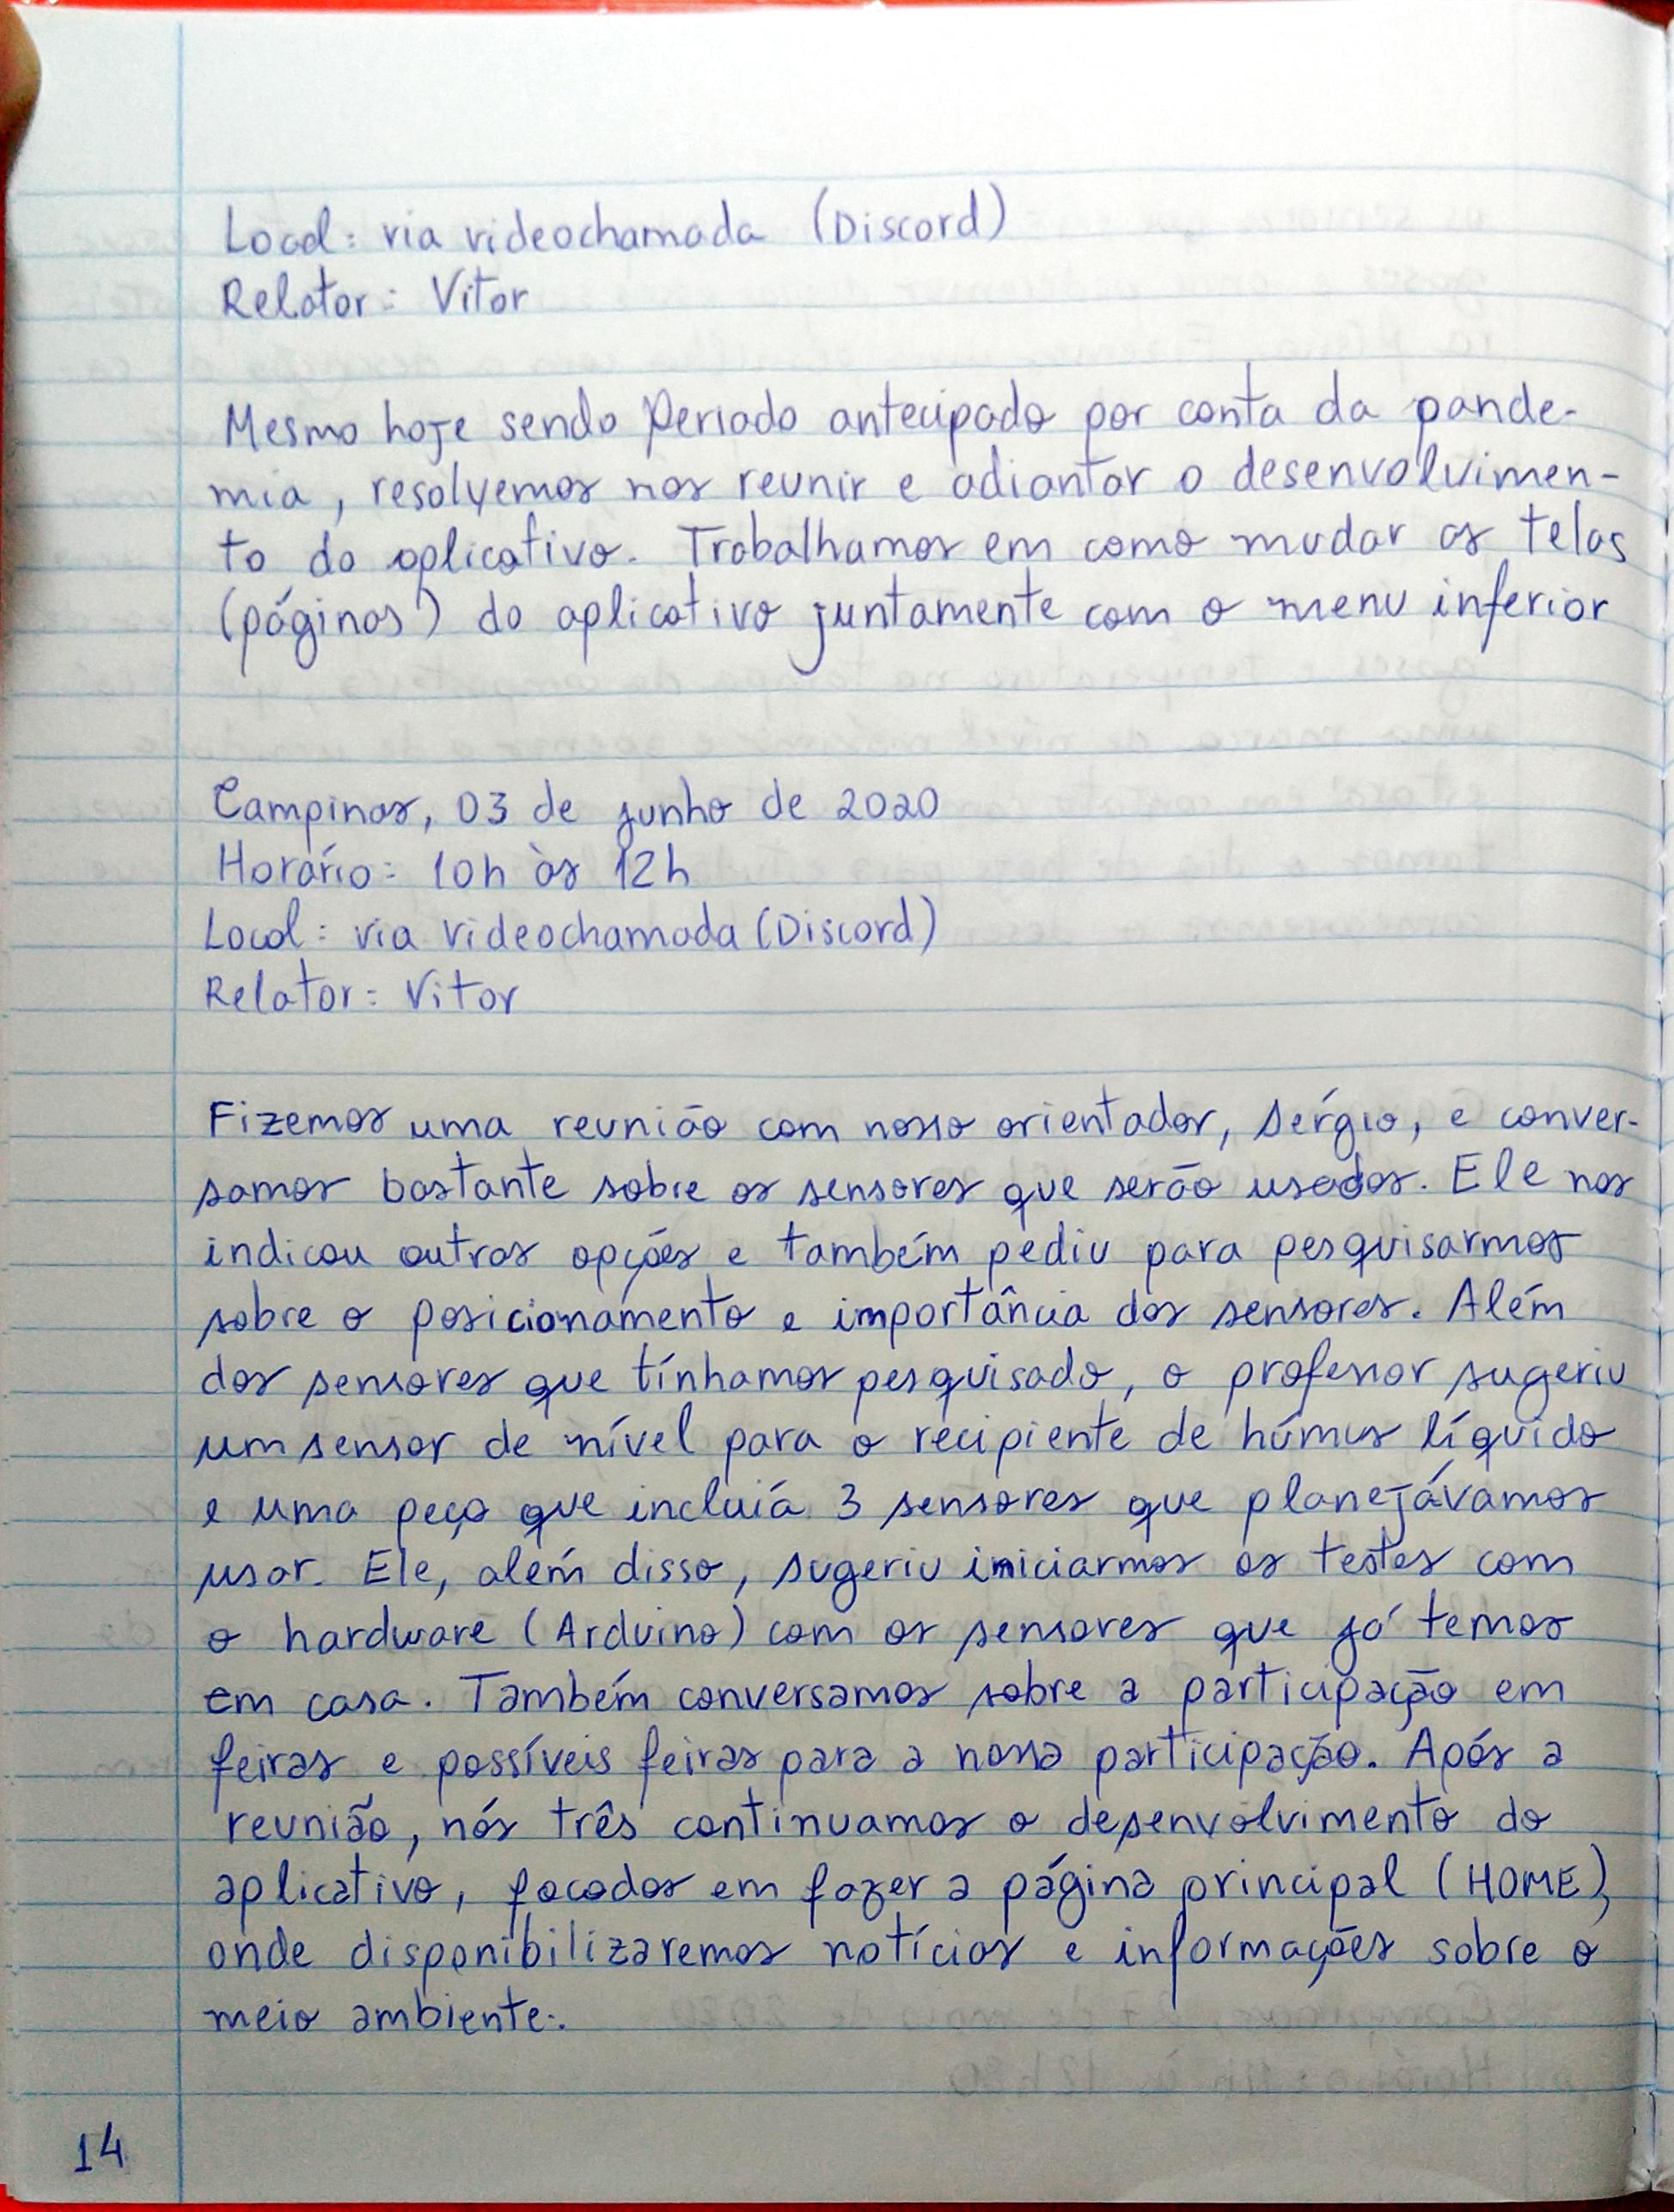 Local: via videochamada (Discord)
Relator: Vitor
Mesmo hoje sendo feriado antecipado por conta da pande-
mia, resolvemos nos reunir e adiantar o desenvolvimen-
to do aplicativo. Trabalhamos em como mudar as telas
(páginas) do aplicativo juntamente com o menu inferior
Campinas, 03 de junho de 2020
Horário: 10h às 12h
Local: via videochamada (Discord)
Relator: Vitor
Fizemos uma reunião com nosso orientador, Sérgio, e conver-
samos bastante sobre os sensores que serão usados. Ele nos
indicou outras opções e também pediu para pesquisarmos
sobre o posicionamento e importância dos sensores. Além
dos sensores que tínhamos pesquisado, o professor sugeriu
um sensor de nível para o recipiente de húmus líquido
e uma peça que incluiá 3 sensores que planejávamos
usar. Ele, além disso, sugeriu iniciarmos os testes com
o hardware (Arduino) com os sensores que já temos
em casa. Também conversamos sobre a participação em
feiras e possíveis feiras para a nossa participação. Após a
reunião, nós três continuamos o desenvolvimento do
aplicativo, focados em fazer a página principal (HOME),
onde disponibilizaremos notícias e informações sobre o
meio ambiente.
14